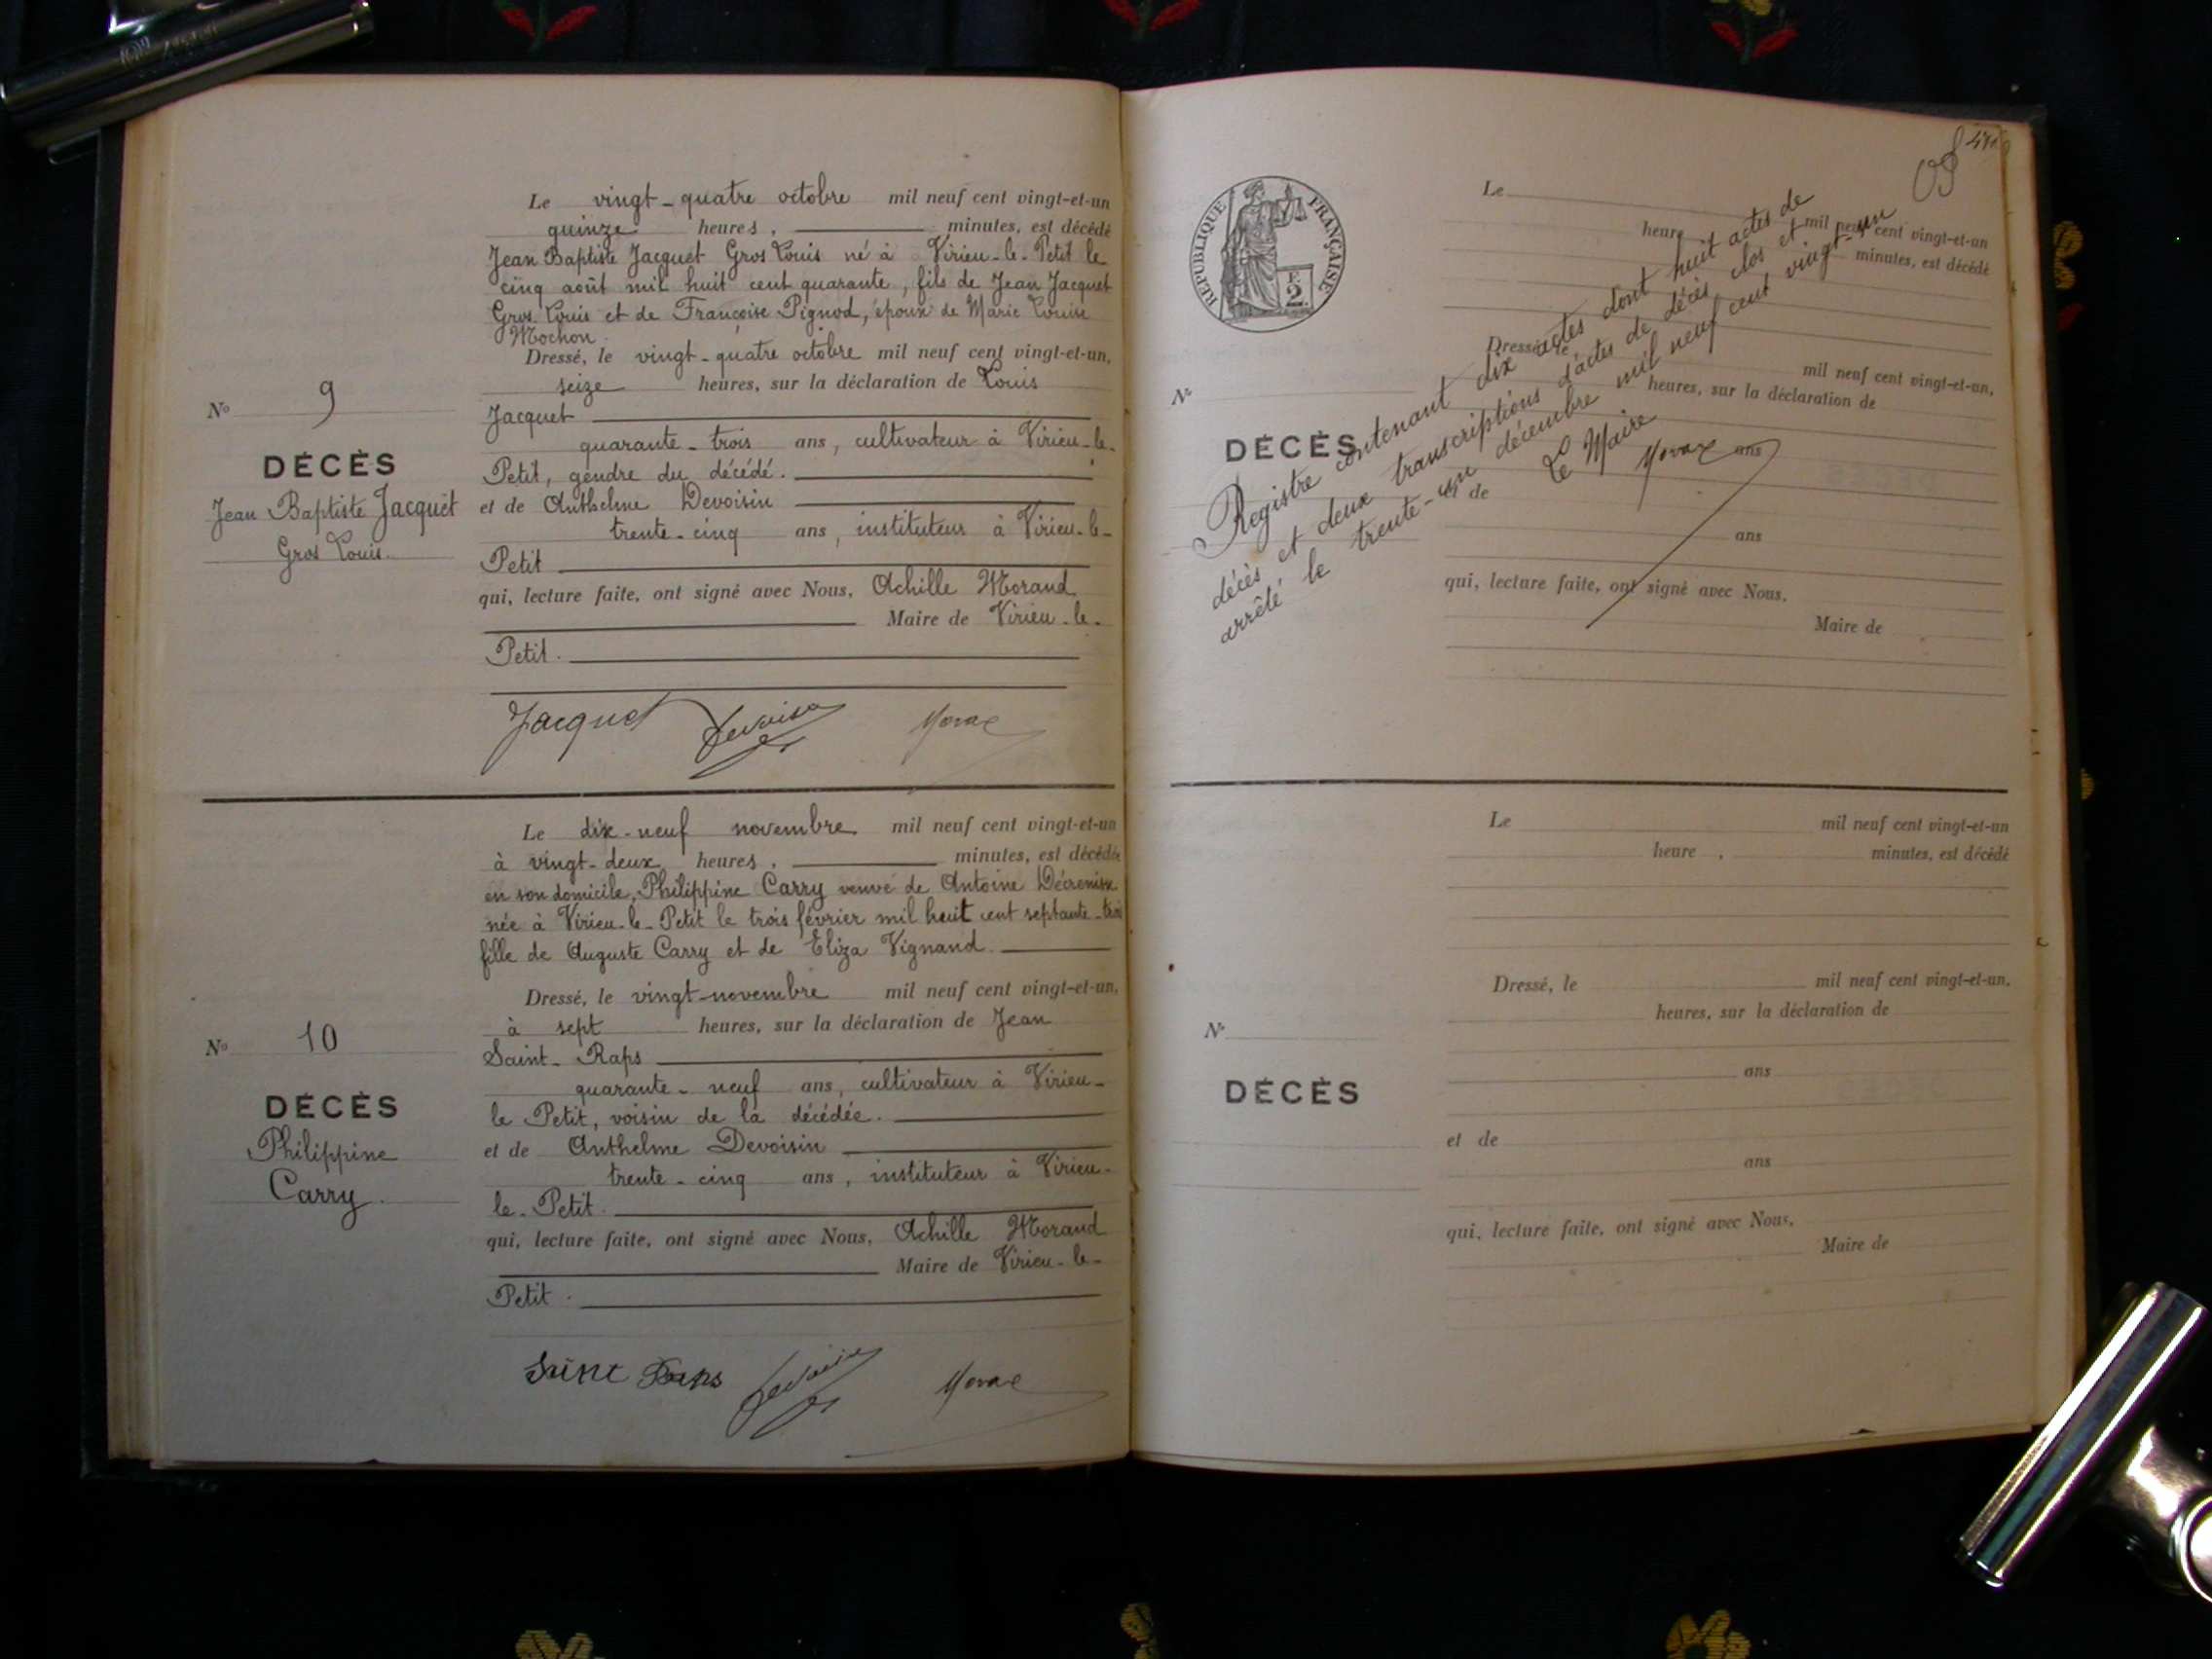 Le vingt-quatre octobre mil neuf cent vingt-et-un
quinze heures, minutes, est décédé
Jean Baptiste Jacquet Gros Louis né à Virieu-le-Petit le
cinq août mil huit cent quarante, fils de Jean Jacquet
Gros Louis et de Françoise Pignod, époux de Marie Louise
Mochon.
Dressé, le vingt-quatre octobre mil neuf cent vingt-et-un,
seize heures, sur la déclaration de Louis
Jacquet
quarante-trois ans, cultivateur à Virieu-le-
Petit, gendre du décédé.
et de Anthelme Devoisin
trente-cinq ans, instituteur à Virieu-le-
Petit
qui, lecture faite, ont signé avec Nous, Achille Morand
Maire de Virieu-le-
Petit.
N° 9
DÉCÈS
Jean Baptiste Jacquet
Gros Louis.
Jacquet Devoisin
Le dix-neuf novembre mil neuf cent vingt-et-un
à vingt-deux heures, minutes, est décédée
en son domicile, Philippine Carry veuve de Antoine
née à Virieu-le-Petit le trois février mil huit cent septante-trois
fille de Auguste Carry et de Eliza Vignand.
Dressé, le vingt-novembre mil neuf cent vingt-et-un,
à sept heures, sur la déclaration de Jean
Saint-Raps
quarante-neuf ans, cultivateur à Virieu-
le Petit, voisin de la décédée.
et de Anthelme Devoisin
trente-cinq ans, instituteur à Virieu-
le-Petit.
qui, lecture faite, ont signé avec Nous, Achille Morand
Maire de Virieu-le-
Petit.
N° 10
DÉCÈS
Philippine
Carry.
Saint Raps Devoisin
RÉPUBLIQUE FRANÇAISE
2
Le
mil neuf cent vingt-et-un
heure minutes, est décédé
Dressé, le
mil neuf cent vingt-et-un,
heures, sur la déclaration de
N°
DÉCÈS
ans
et de
ans
qui, lecture faite, ont signé avec Nous,
Maire de
Registre contenant dix actes dont huit actes de
décès et deux transcriptions d'actes de décès clos et
arrêté le trente-un décembre mil neuf cent vingt-un
Le Maire
Le mil neuf cent vingt-et-un
heure , minutes, est décédé
Dressé, le mil neuf cent vingt-et-un,
heures, sur la déclaration de
N°
ans
DÉCÈS
et de
ans
qui, lecture faite, ont signé avec Nous,
Maire de